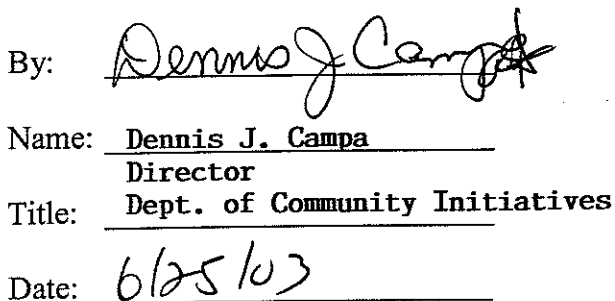 By: Dennis J. Campa
Name: Dennis J. Campa
Director
Title: Dept. of Community Initiatives
Date: 6/25/03